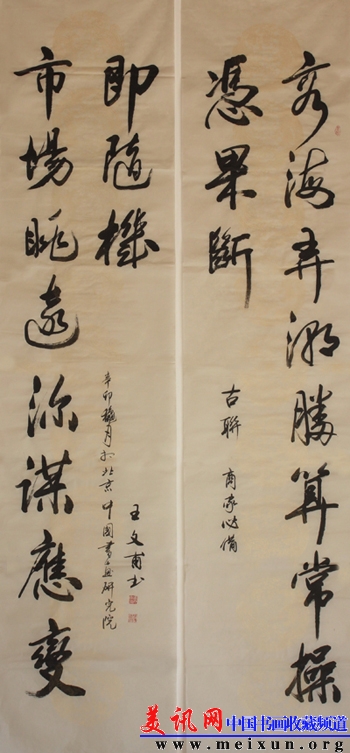 商海弄潮勝算常操
憑果斷
古聯 商家必備
市場眺遠深謀應變
即隨機
辛卯穐月於北京中國書畫研究院
王文甫書
美讯网 中国书画收藏频道
www.meixun.org